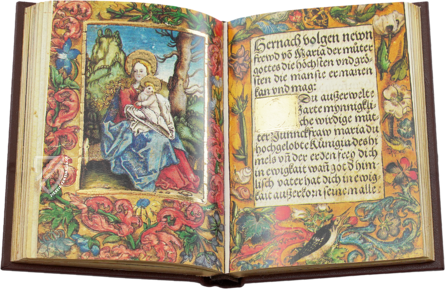 Hernach volgen newn
frewd vō Maria der müter
gottes die höchsten vnd grö
sten die man sie ermanen
kan vnd mag:
Du außerwelte
zarte mynnigkli
che wirdige mü
ter Junnckfraw maria du
hochgelobte Künigin des hi
mels vn̄ der erden frey dich
ewigkait wan got d' him
lisch vater hat dich in ewig
kait außerkorn seinem alle